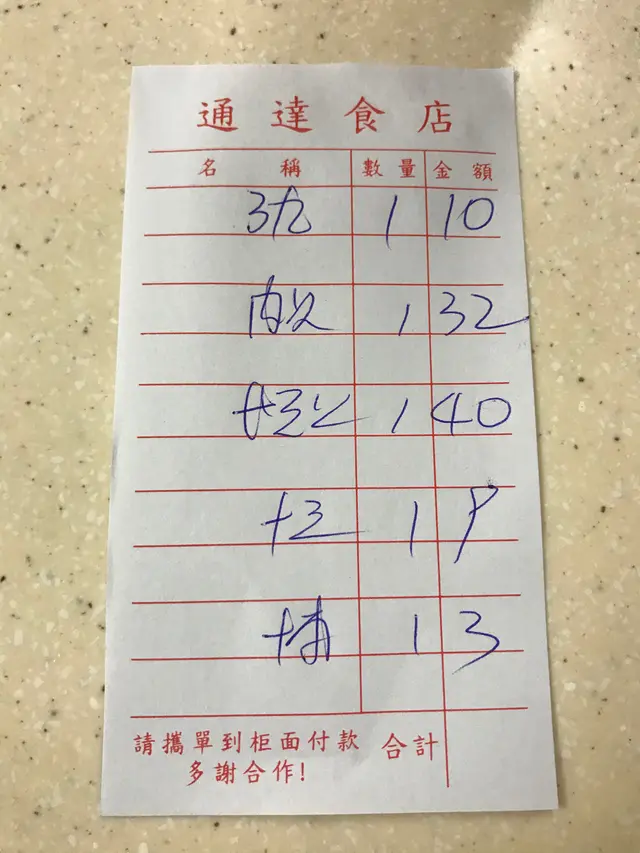 通達食店
名稱 數量 金額
1 10
1 32
1 40
1 9
1 3
請攜單到柜面付款 合計
多謝合作!